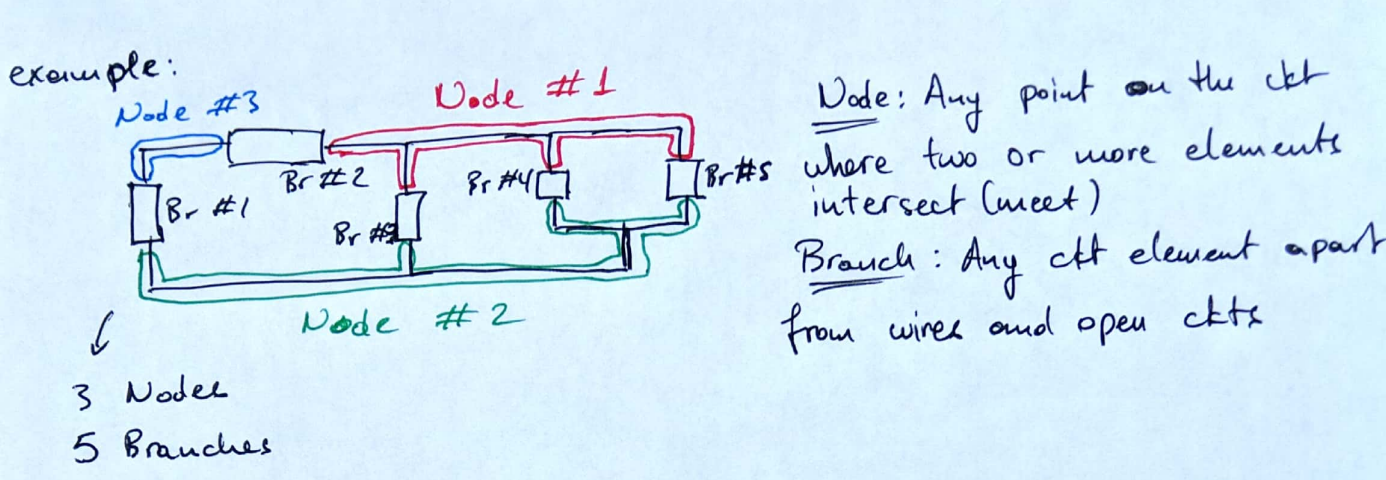 example:
Node #3
Node #1
Br #2
Br #4
Br #5
Br #1
Br
Node #2
3 Nodes
5 Branches
Node: Any point on the ckt
where two or more elements
intersect (meet)
Branch: Any ckt element apart
from wires and open ckts